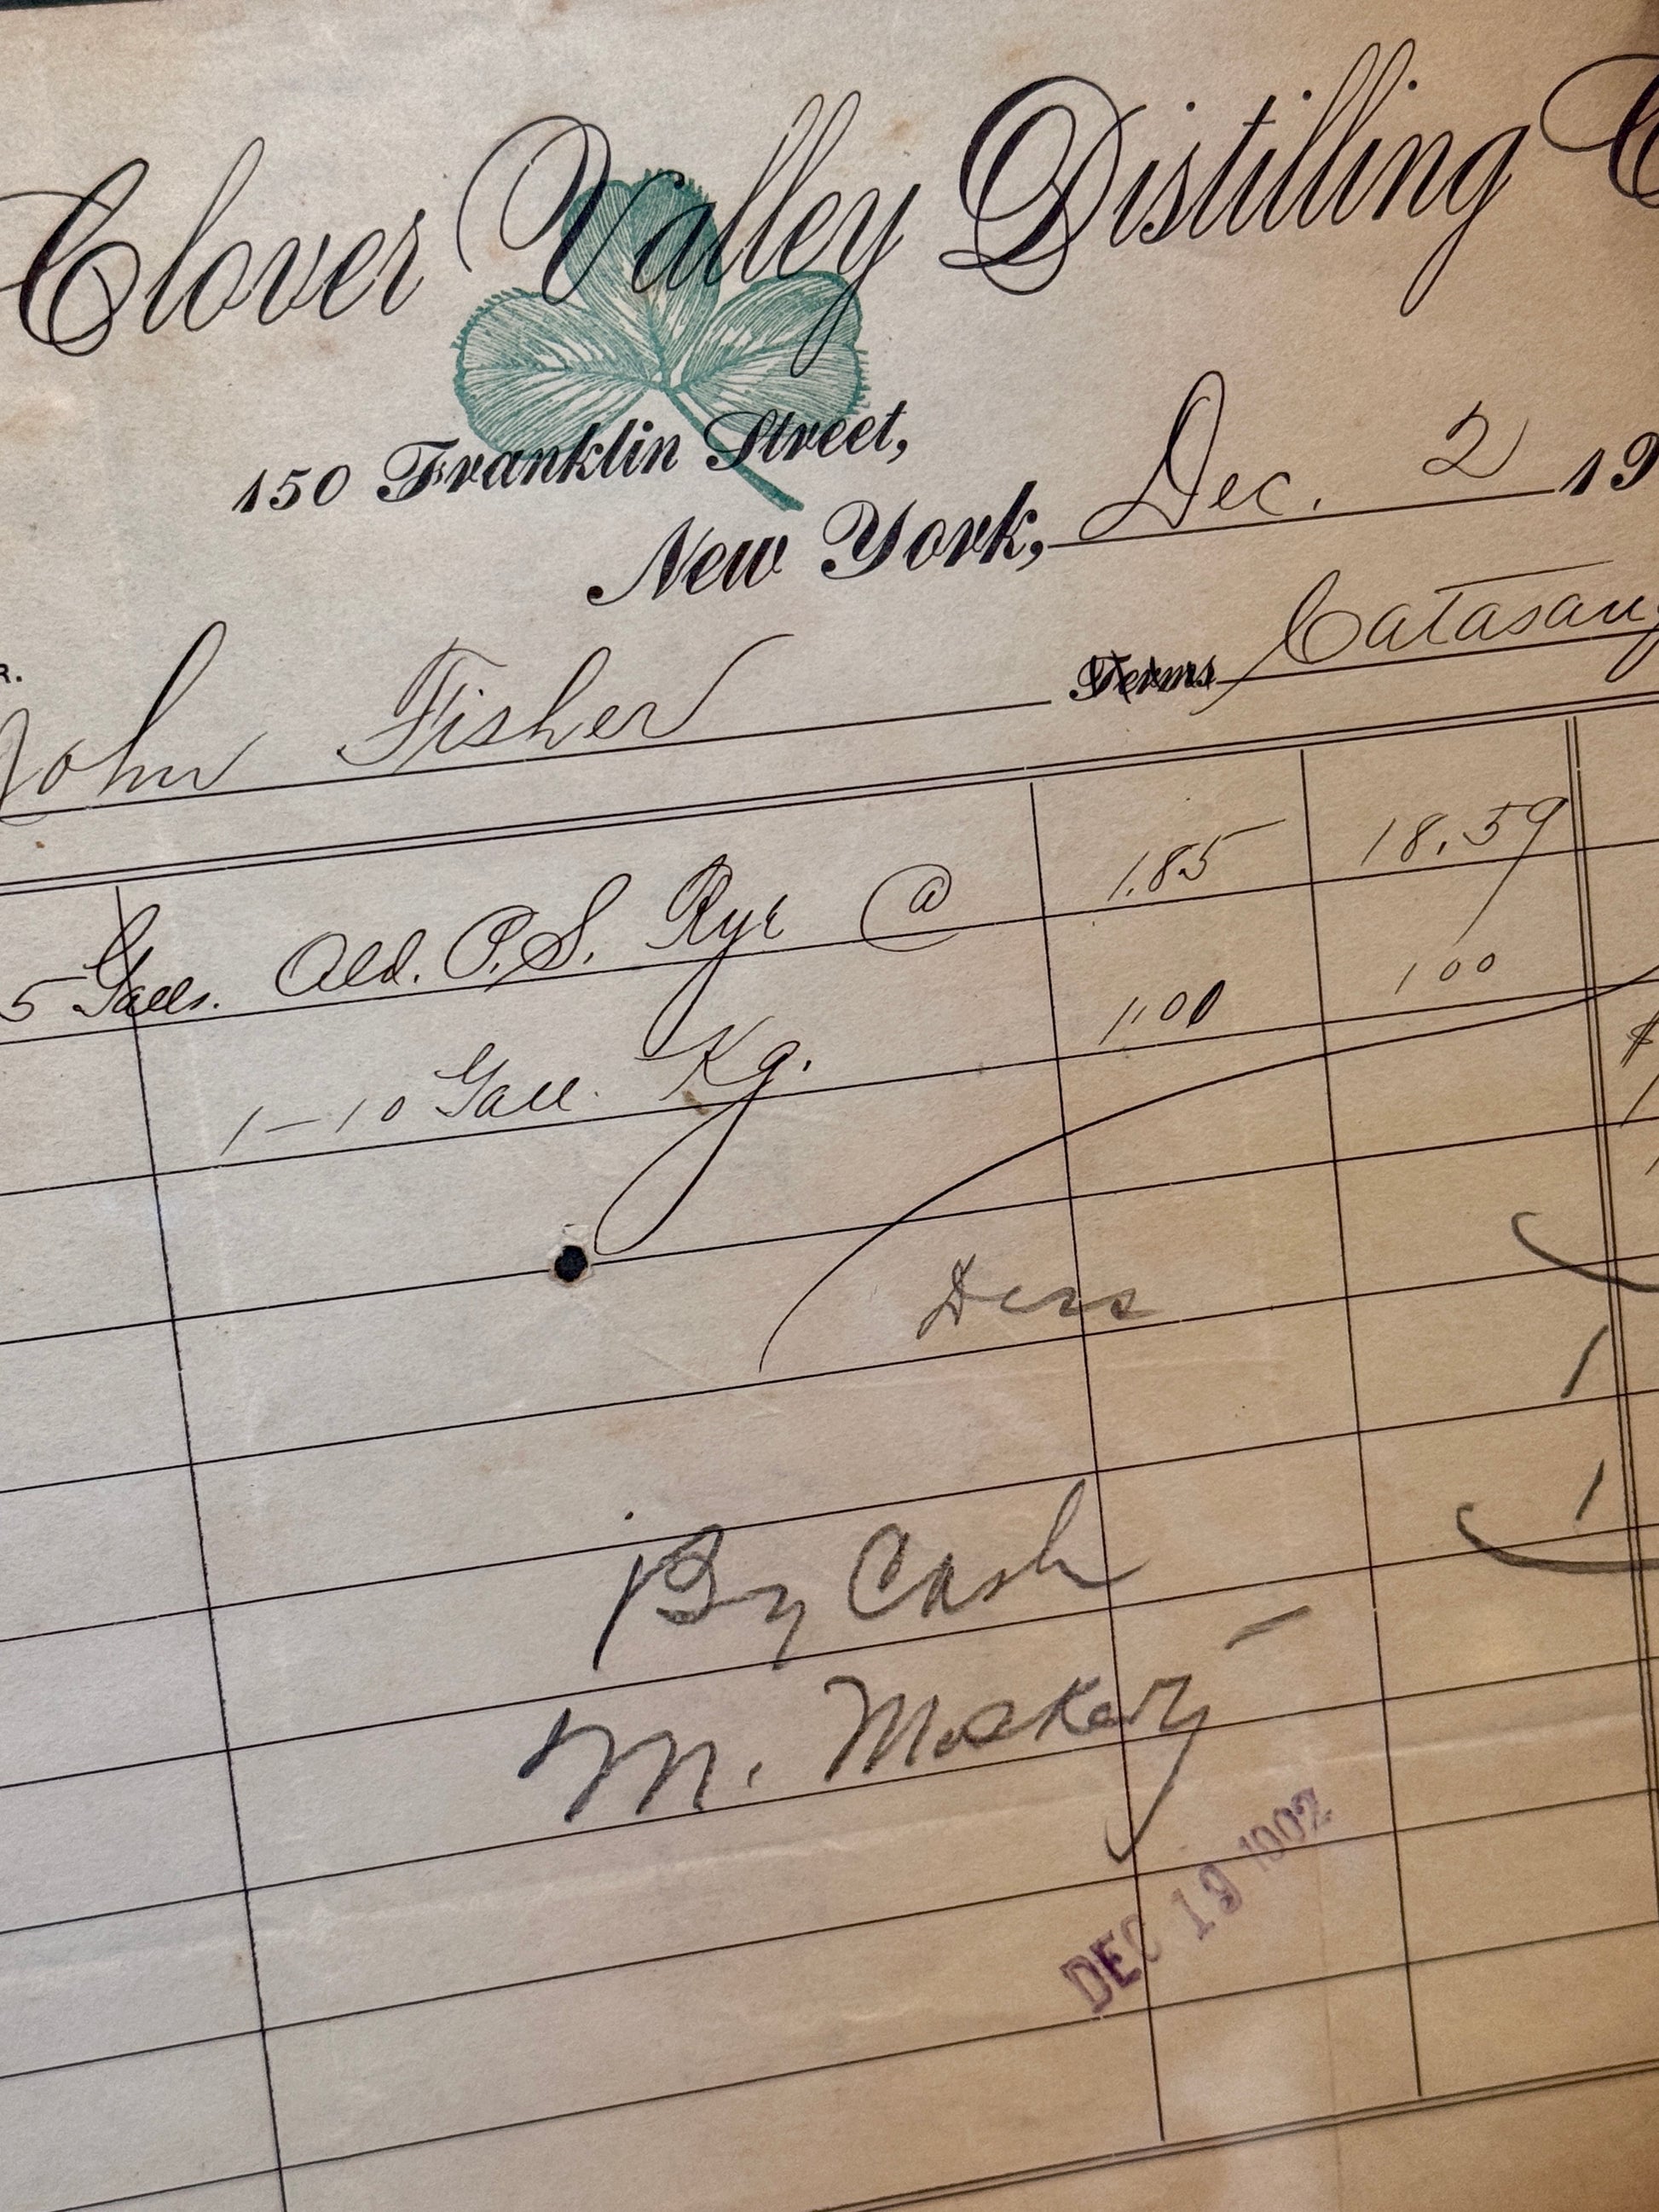 Clover Valley Distilling C
150 Franklin Street,
New York, Dec. 2 19
R.
John Fisher Terms Catasauq
5 Galls. Old. P.S. Rye @ 1.85 18.59
1-10 Gall. Kg. 1.00 1 00
$
By Cash
M.
DEC 19 1902